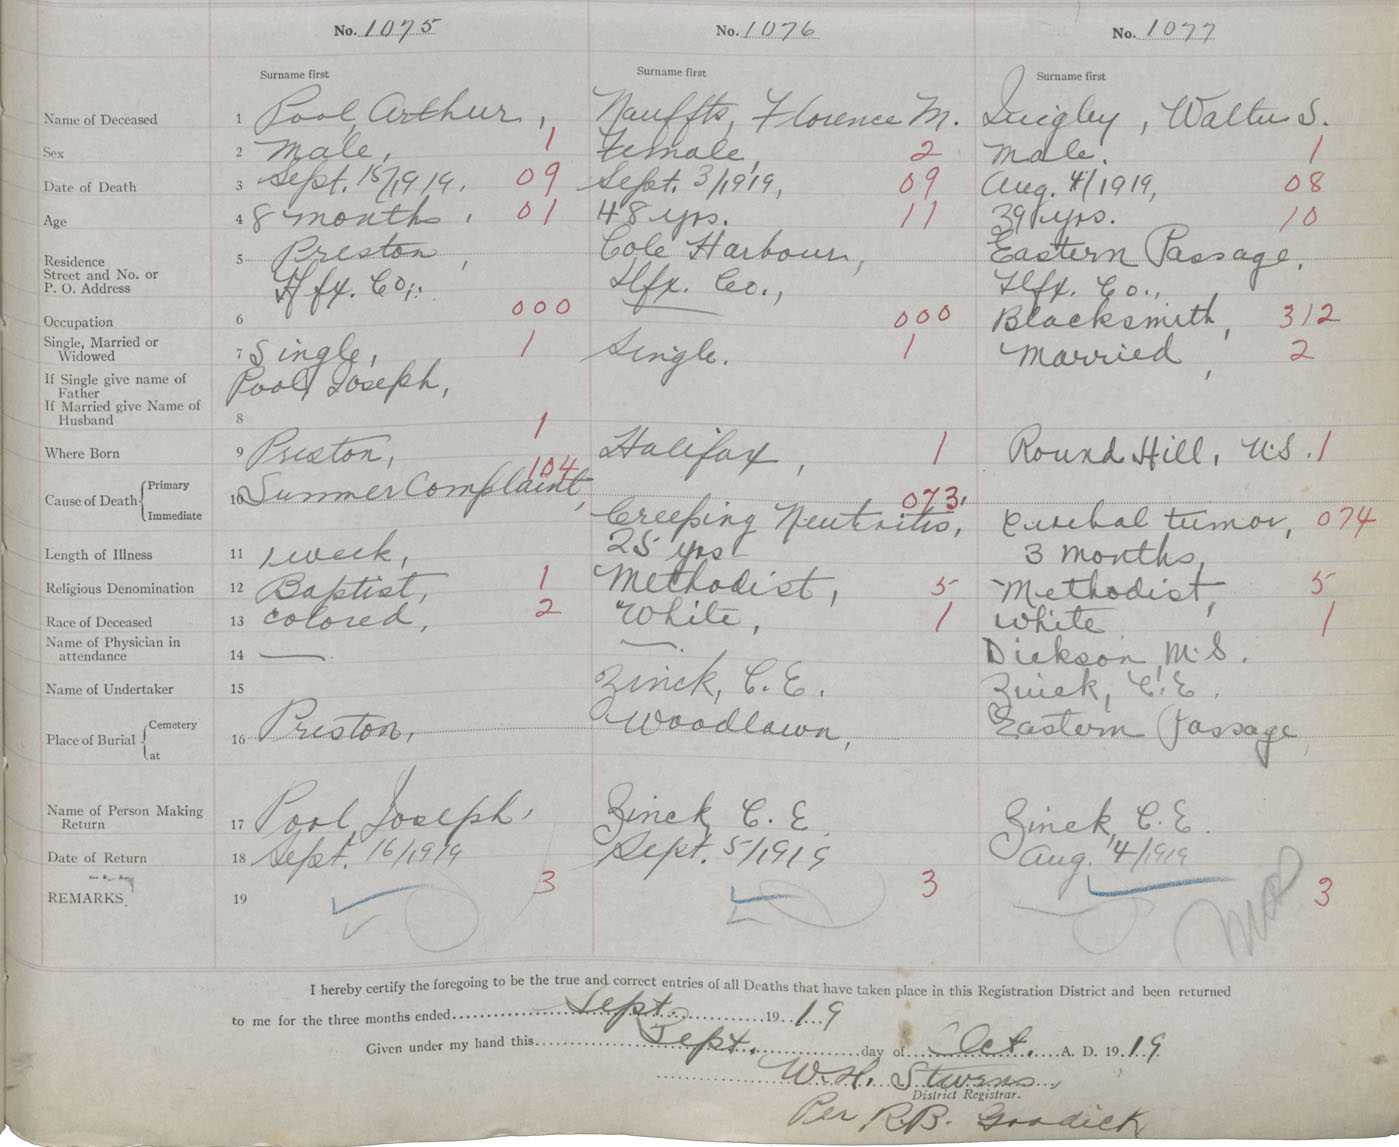 No. 1075 No. 1076 No. 1077
Surname first Surname first Surname first
Name of Deceased 1 Pool, Arthur, Nauffts, Florence M. Quigley, Walter S.
Sex 2 Male, 1 Female, 2 Male. 1
Date of Death 3 Sept. 15/1919. 09 Sept. 3/1919, 09 Aug. 4/1919, 08
Age 4 8 months, 01 48 yrs. 11 39 yrs. 10
Residence 5 Preston, Cole Harbour, Eastern Passage,
Street and No. or
P. O. Address Hfx. Co., Hfx. Co., Hfx. Co.,
Occupation 6 000 000 Blacksmith, 312
Single, Married or
Widowed 7 Single, 1 Single. 1 Married, 2
If Single give name of
Father Pool, Joseph,
If Married give Name of
Husband 8
Where Born 9 Preston, 1 Halifax, 1 Round Hill, N.S. 1
Cause of Death Primary Immediate 10 Summer Complaint, 104 Creeping Neutritis, 073 tumor, 074
Length of Illness 11 1 week, 25 yrs 3 months,
Religious Denomination 12 Baptist, 1 Methodist, 5 Methodist, 5
Race of Deceased 13 Colored, 2 White, 1 White 1
Name of Physician in
attendance 14 — — Dickson, M.S.
Name of Undertaker 15 Zinck, C.E. Zinck, C.E.
Place of Burial Cemetery at 16 Preston, Woodlawn, Eastern Passage,
Name of Person Making
Return 17 Pool, Joseph, Zinck, C.E. Zinck, C.E.
Date of Return 18 Sept. 16/1919 Sept. 5/1919 Aug. 4/1919
REMARKS 19 3 3 3
I hereby certify the foregoing to be the true and correct entries of all Deaths that have taken place in this Registration District and been returned
to me for the three months ended Sept. 1919
Given under my hand this Sept. day of Oct. A. D. 1919
W.H. Stevens,
District Registrar.
Per R.B. Goodick